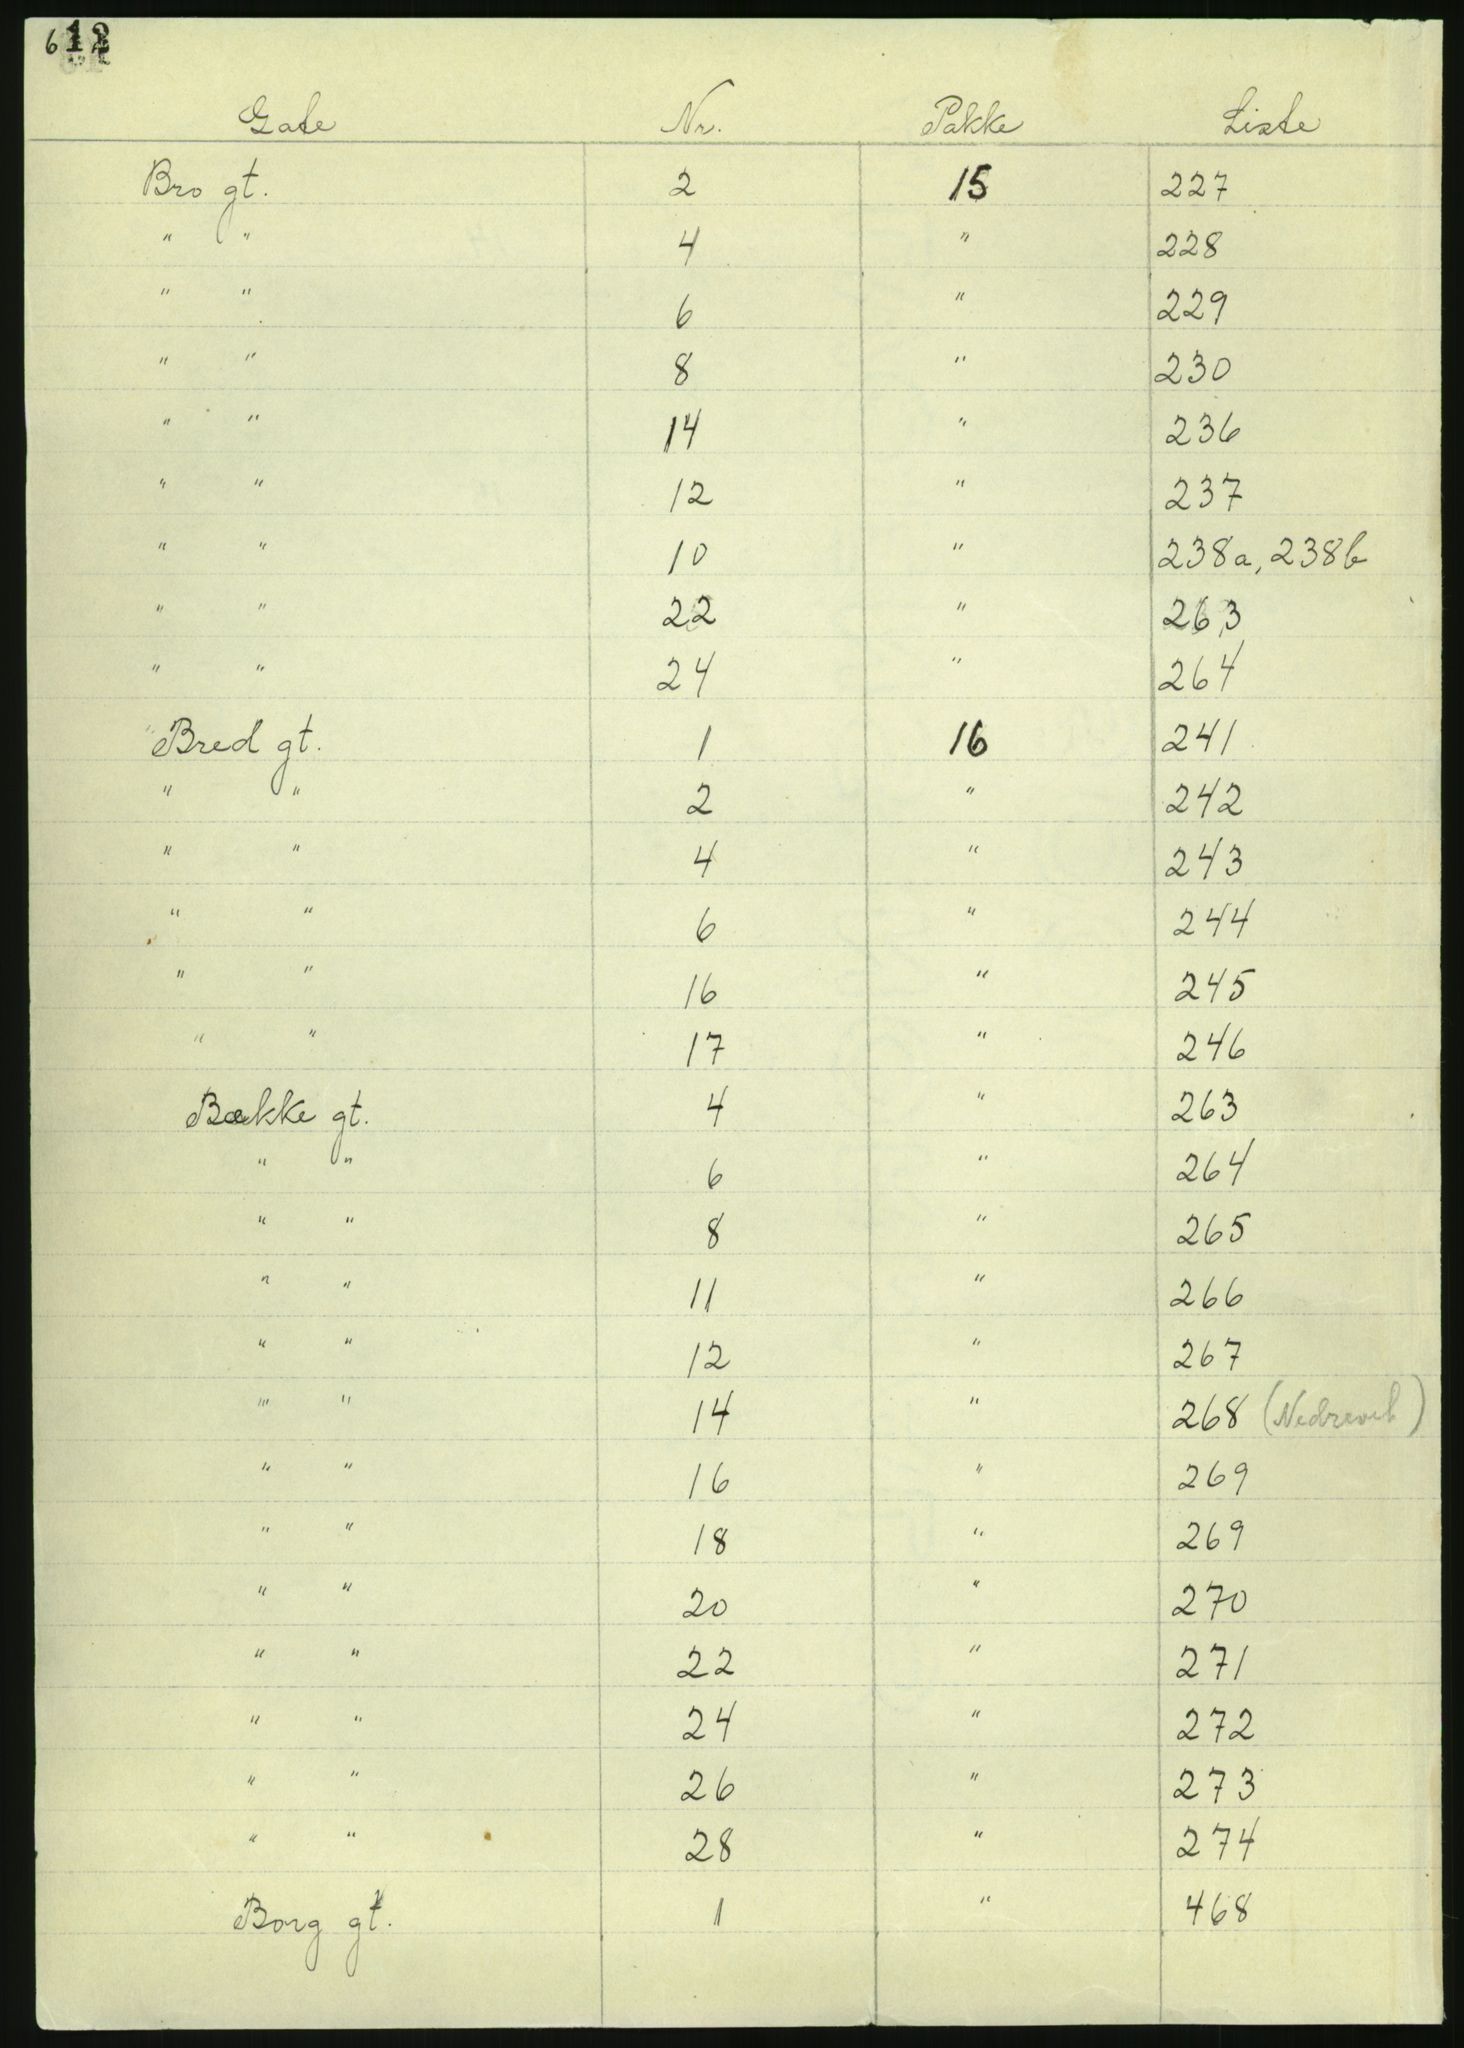 6 12
Gate Nr. Pakke Liste
Bro gt. 2 15 227
" " 4 " 228
" " 6 " 229
" " 8 " 230
" " 14 " 236
" " 12 " 237
" " 10 " 238a, 238b
" " 22 " 263
" " 24 " 264
Bred gt. 1 16 241
" " 2 " 242
" " 4 " 243
" " 6 " 244
" " 16 " 245
" " 17 " 246
Bække gt. 4 " 263
" " 6 " 264
" " 8 " 265
" " 11 " 266
" " 12 " 267
" " 14 " 268
" " 16 " 269
" " 18 " 269
" " 20 " 270
" " 22 " 271
" " 24 " 272
" " 26 " 273
" " 28 " 274
Borg gt. 1 " 468